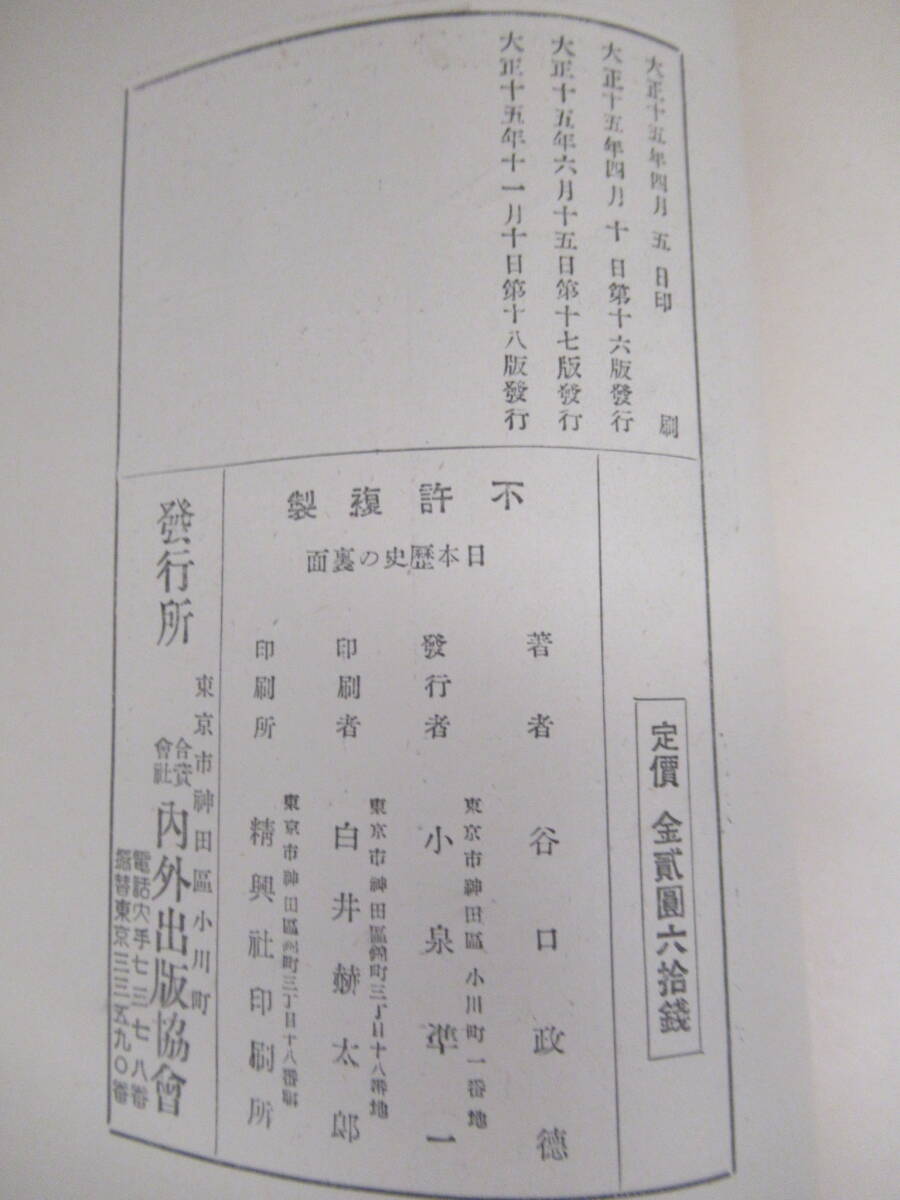 大正十五年四月五日印刷
大正十五年四月十日第十六版發行
大正十五年六月十五日第十七版發行
大正十五年十一月十日第十八版發行
定價 金貳圓六拾錢
不許複製
日本歷史の裏面
著者 谷口政德
東京市神田區小川町一番地
發行者 小泉準一
東京市神田區錦町三丁目十八番地
印刷者 白井赫太郎
東京市神田區錦町三丁目十八番地
印刷所 精興社印刷所
東京市神田區小川町
發行所 合資會社 內外出版協會
電話大手七三七八番
振替東京三三五九〇番